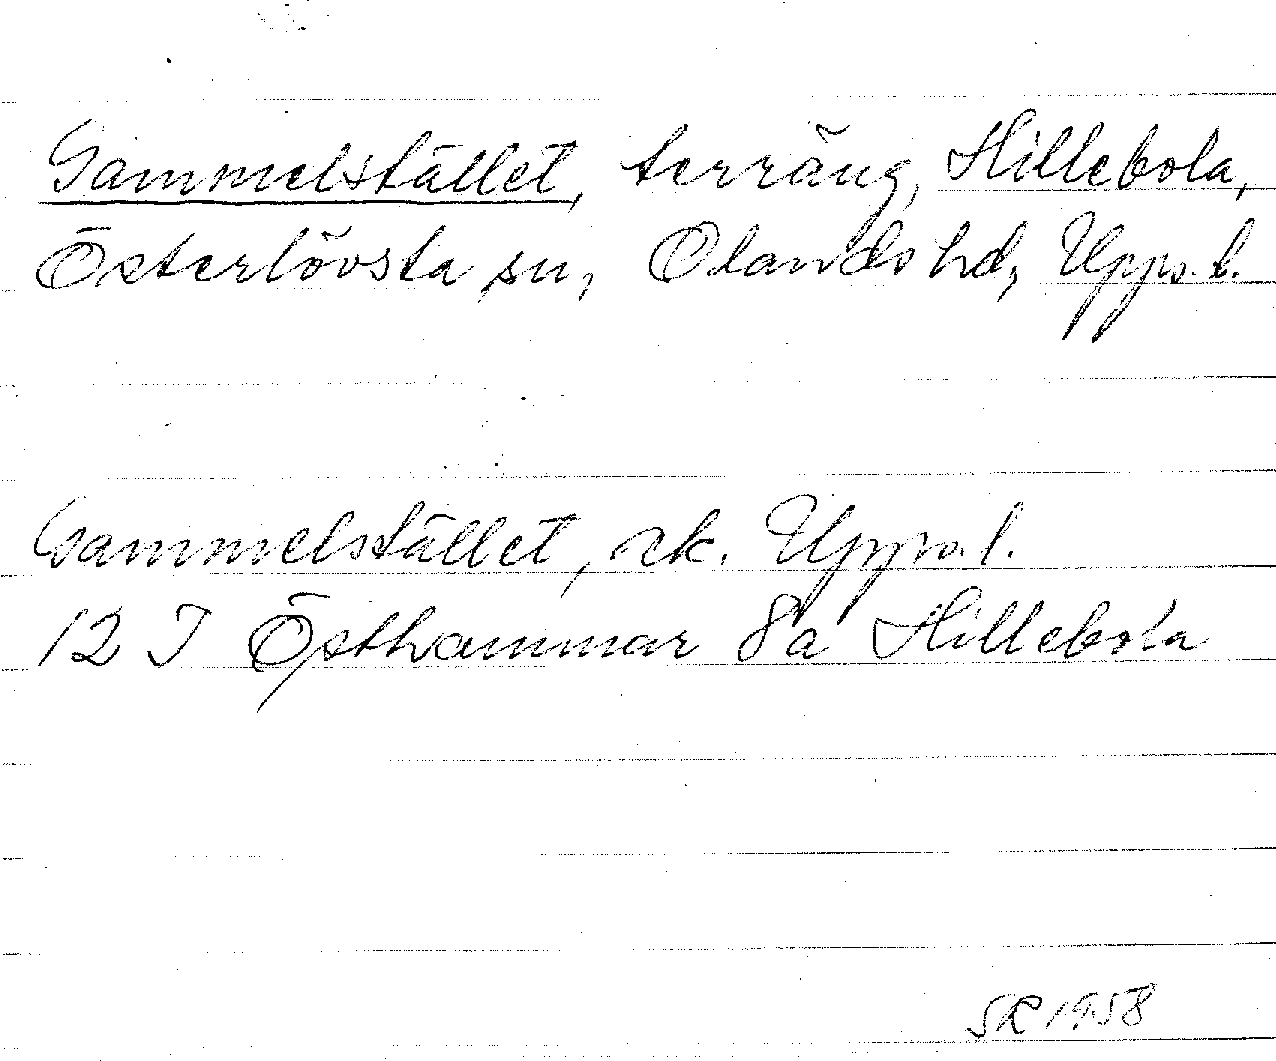 Gammelstället, terräng, Hillebola,
Österlövsta sn, Olands hd, Upps. l.
Gammelstället, ek. Upps. l.
12 I Östhammar 8a Hillebola
SR 1958